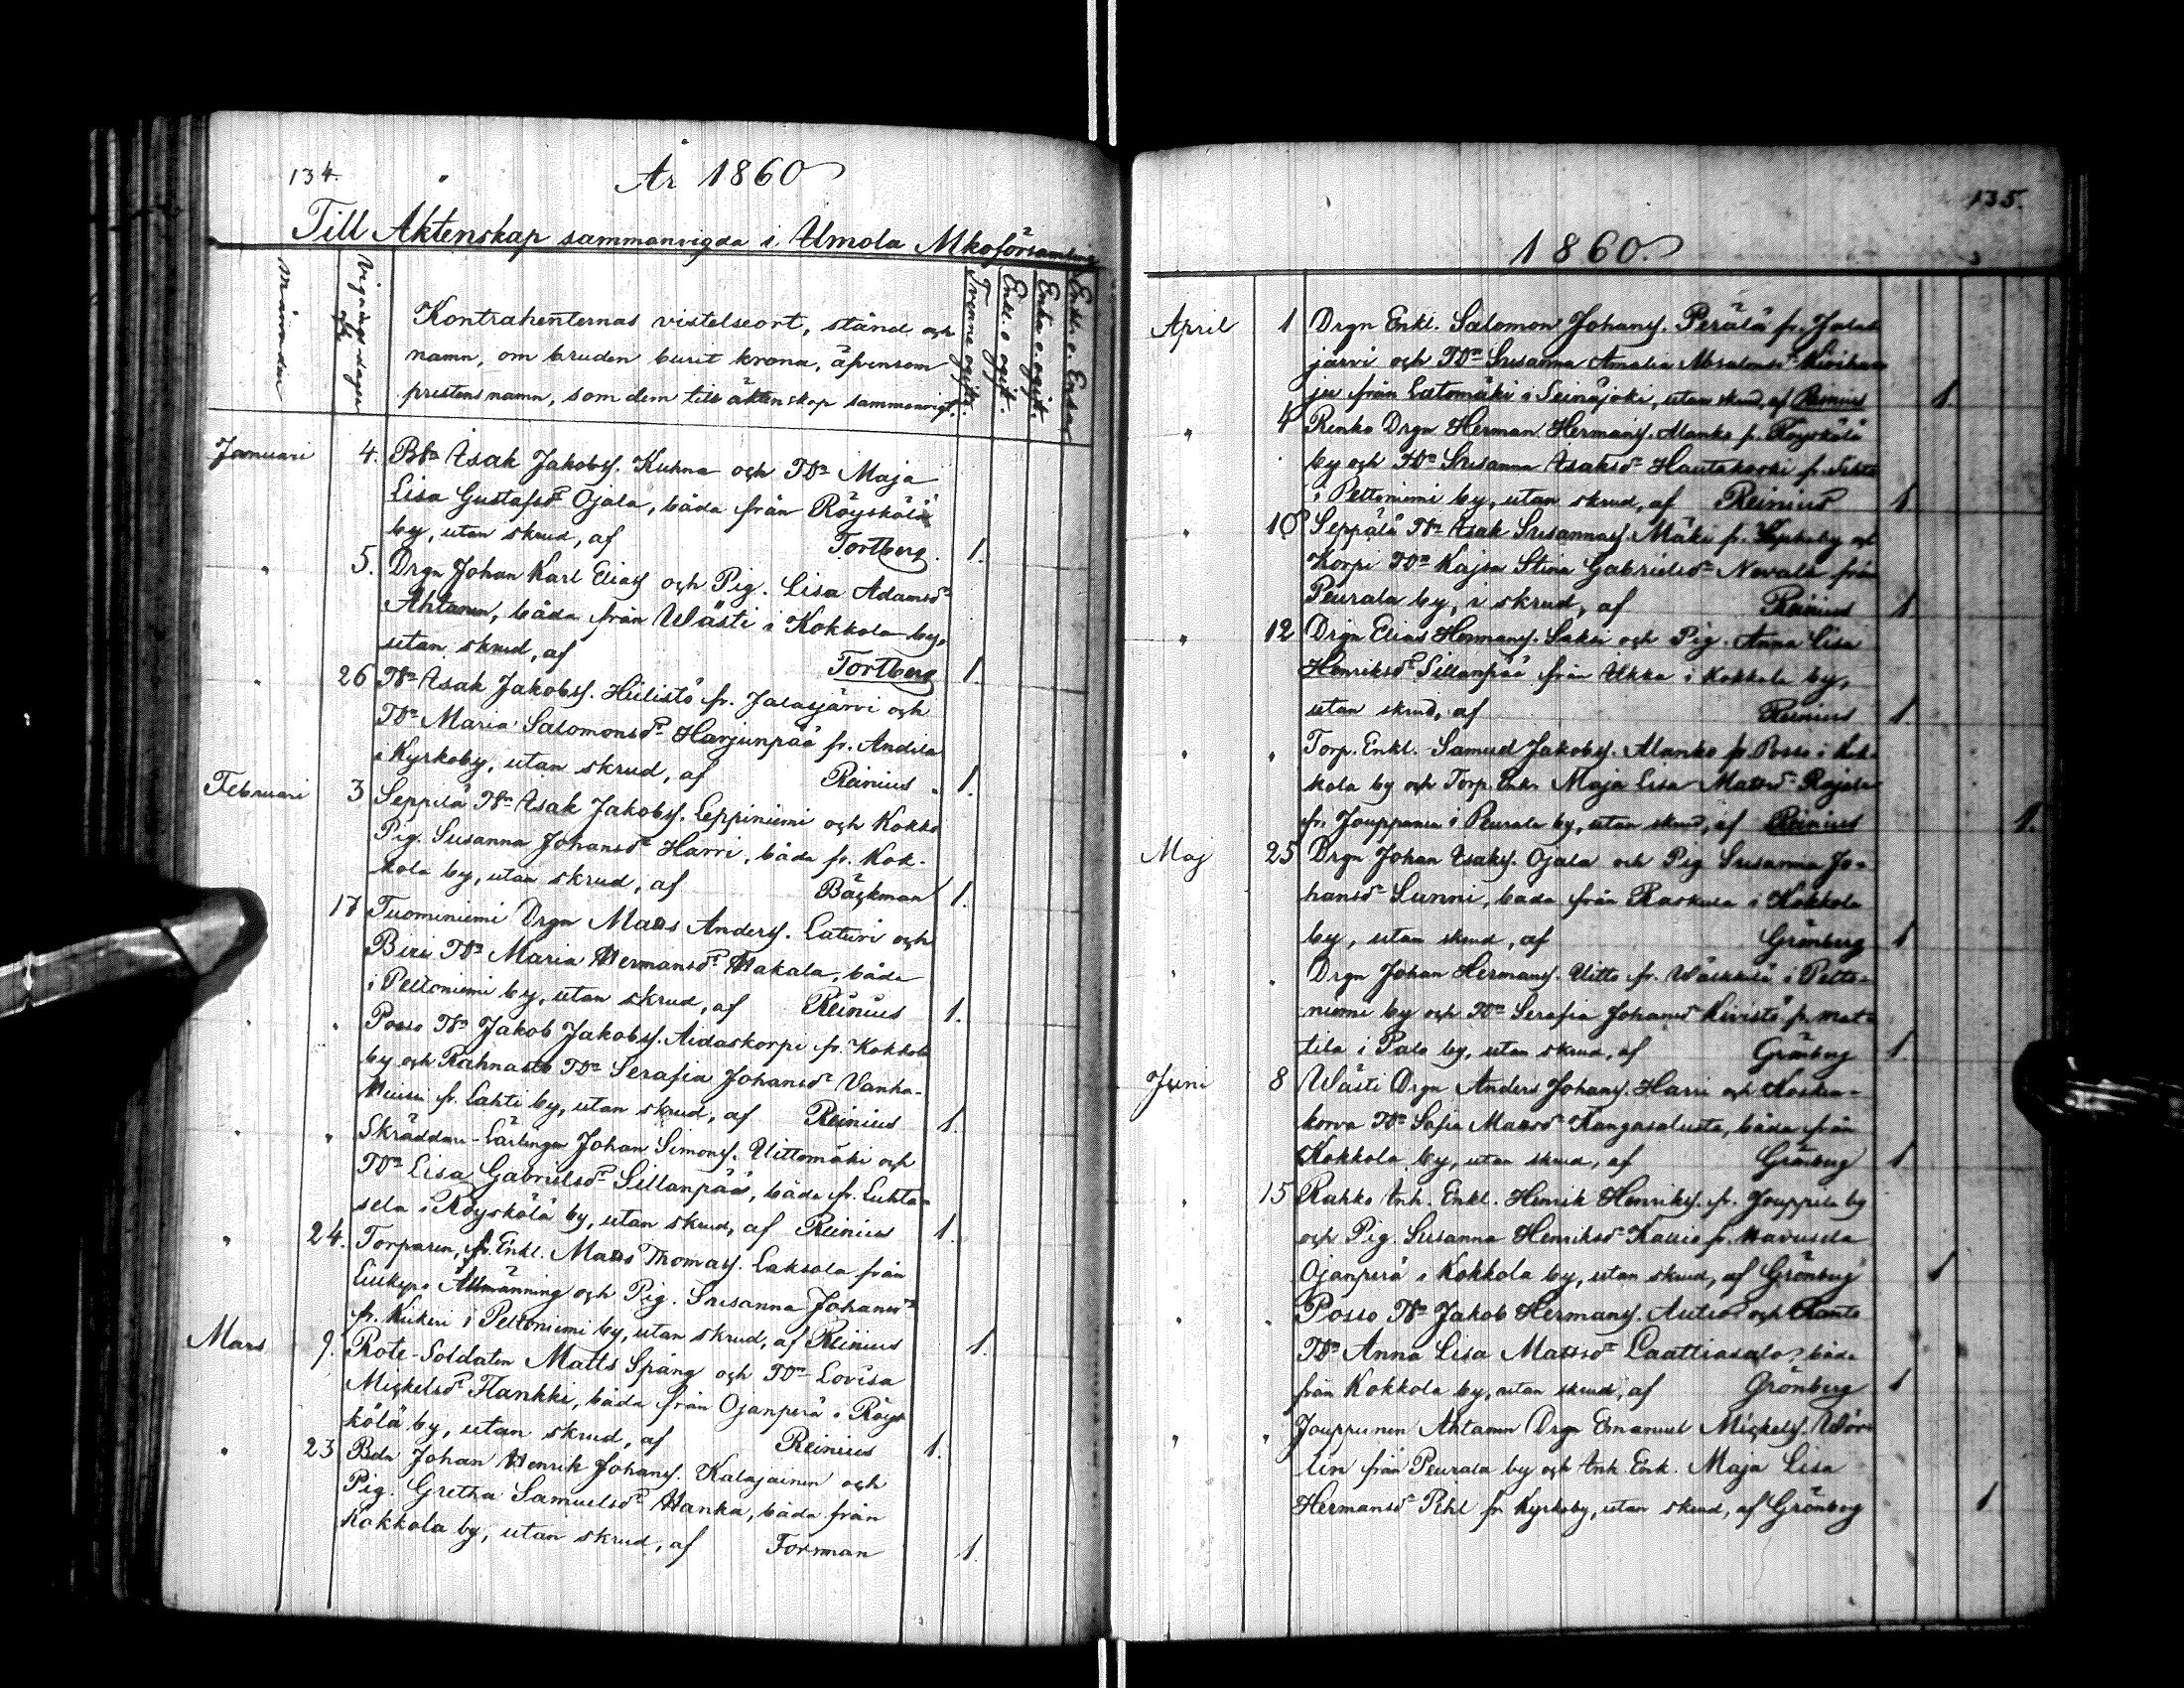 134.
År 1860
Till Äktenskap sammanvigda i Ilmola Mkoförsamling
Månader
Vignings dagar
Kontrahenternas vistelseort, stånd och
namn, om bruden burit krona, äfvensom
prestens namn, som dem till äktenskap sammanvigt.
Tvenne ogifta.
Enkl. o ogift.
Enka o. ogift.
Enkl. o. Enka
Januari 4. Bdn Isak Jakobss. Kuhna och TDn Maja
Lisa Gustafsdr Ojala, båda från Röyskölä
by, utan skrud, af Tortberg. 1.
" 5. Drgn Johan Karl Eliass och Pig. Lisa Adamsdr
Ahtanen, båda från Wästi i Kokkola by,
utan skrud, af Tortberg 1.
" 26 TSn Isak Jakobss. Hiilistö fr. Jalasjärvi och
TDn Maria Salomonsdr Harjunpää fr. Andila
i Kyrkoby, utan skrud, af Reinius. 1.
Februari 3 Seppilä TSn Isak Jakobss. Leppiniemi och Kokko
Pig. Susanna Johansdr Harri, båda fr. Kok-
kola by, utan skrud, af Bäckman 1.
17 Tuominiemi Drgn Mats Anderss. Laturi och
Biri TDn Maria Hermansdr Hakala, båda
i Peltoniemi by, utan skrud, af Reinius 1.
" " Posso TSn Jakob Jakobss. Aidaskorpi fr. Kokkola
by och Rahnasto TDn Serafia Johansdr Vanha-
fr. Lahti by, utan skrud, af Reinius 1.
" " Skräddare-Lärlingen Johan Simonss. Uittomäki och
TDn Lisa Gabrielsdr Sillanpää, båda fr. Luhta-
sela i Röyskölä by, utan skrud, af Reinius 1.
" 24. Torparen, fr. Enkl. Mats Thomass. Laksola från
Allmänning och Pig. Susanna Johansdr
fr. Kiikeri i Peltoniemi by, utan skrud, af Reinius 1.
Mars 9. Rote-Soldaten Matts Spång och TDn Lovisa
Mickelsdr Flankki, båda från Ojanperä i Röys
kölä by, utan skrud, af Reinius 1.
" 23 Bdn Johan Henrik Johanss. Kalajainen och
Pig. Gretha Samuelsdr Hanka, båda från
Kokkola by, utan skrud, af Forsman 1.
135.
1860.
April 1 Drgn Enkl. Salomon Johanss. Perälä fr. Jalas
järvi och TDn Susanna Amalia Absalonsdr Kiviharju
ju från Latomäki i Seinäjoki, utan skrud, af Reinius 1.
" 4 Renko Drgn Herman Hermanss. Alanko fr. Röyskölä
by och TDn Susanna Isaksdr Hautakorki fr.
i Peltoniemi by, utan skrud, af Reinius 1
" 10 Seppälä TSn Isak Susannass. Mäki fr. Kyrkoby och
Korpi TDn Kajsa Stina Gabrielsdr Novala från
Peurala by, i skrud, af Reinius 1
" 12 Drgn Elias Hermanss. Saksi och Pig. Anna Lisa
Henriksdr Sillanpää från Ukka i Kokkola by,
utan skrud, af Reinius 1.
" " Torp. Enkl. Samuel Jakobss. Alanko fr. Posso i Kok-
kola by och Torp. Enk. Maja Lisa Mattsdr Rajala
fr. Jouppanen i Peurala by, utan skrud, af Reinius 1.
Maj 25 Drgn Johan Isakss. Ojala och Pig Susanna Jo-
hansdr Lunni, båda från Raskula i Kokkola
by, utan skrud, af Grönberg 1
" " Drgn Johan Hermanss. Uitto fr. Wäckkilä i Pelto-
niemi by och TDn Serafia Johansdr Kivistö fr. Mat-
tila i Palo by, utan skrud, af Grönberg 1.
Juni 8 Wästi Drgn Anders Johanss. Harri och Kosken-
korva TDn Safia Matsdr Kangasalusta, båda från
Kokkola by, utan skrud, af Grönberg 1
" 15 Rahko Inh. Enkl. Henrik Henrikss. fr. Jouppila by
och Pig. Susanna Henriksdr Kallio fr. Havusela
Ojanperä i Kokkola by, utan skrud, af Grönberg 1
" " Posso TSn Jakob Hermanss. Autio och Ranto
TDn Anna Lisa Matssdr Laattiasalo, båda
från Kokkola by, utan skrud, af Grönberg 1
" " Jouppunen Ahtanen Drgn Emanuel Mickelss. Wör-
lin från Peurala by och Inh. Enk. Maja Lisa
Hermansdr Pihl fr. Kyrkoby, utan skrud, af Grönberg 1